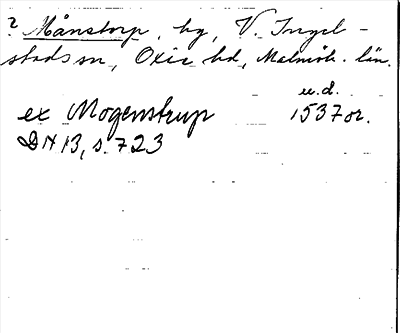 ? Månstorp, by, V. Ingel-
stads sn, Oxie hd, Malmöh. län.
u.d.
ex Mogenstrup 1537 or.
DN 13, s. 723